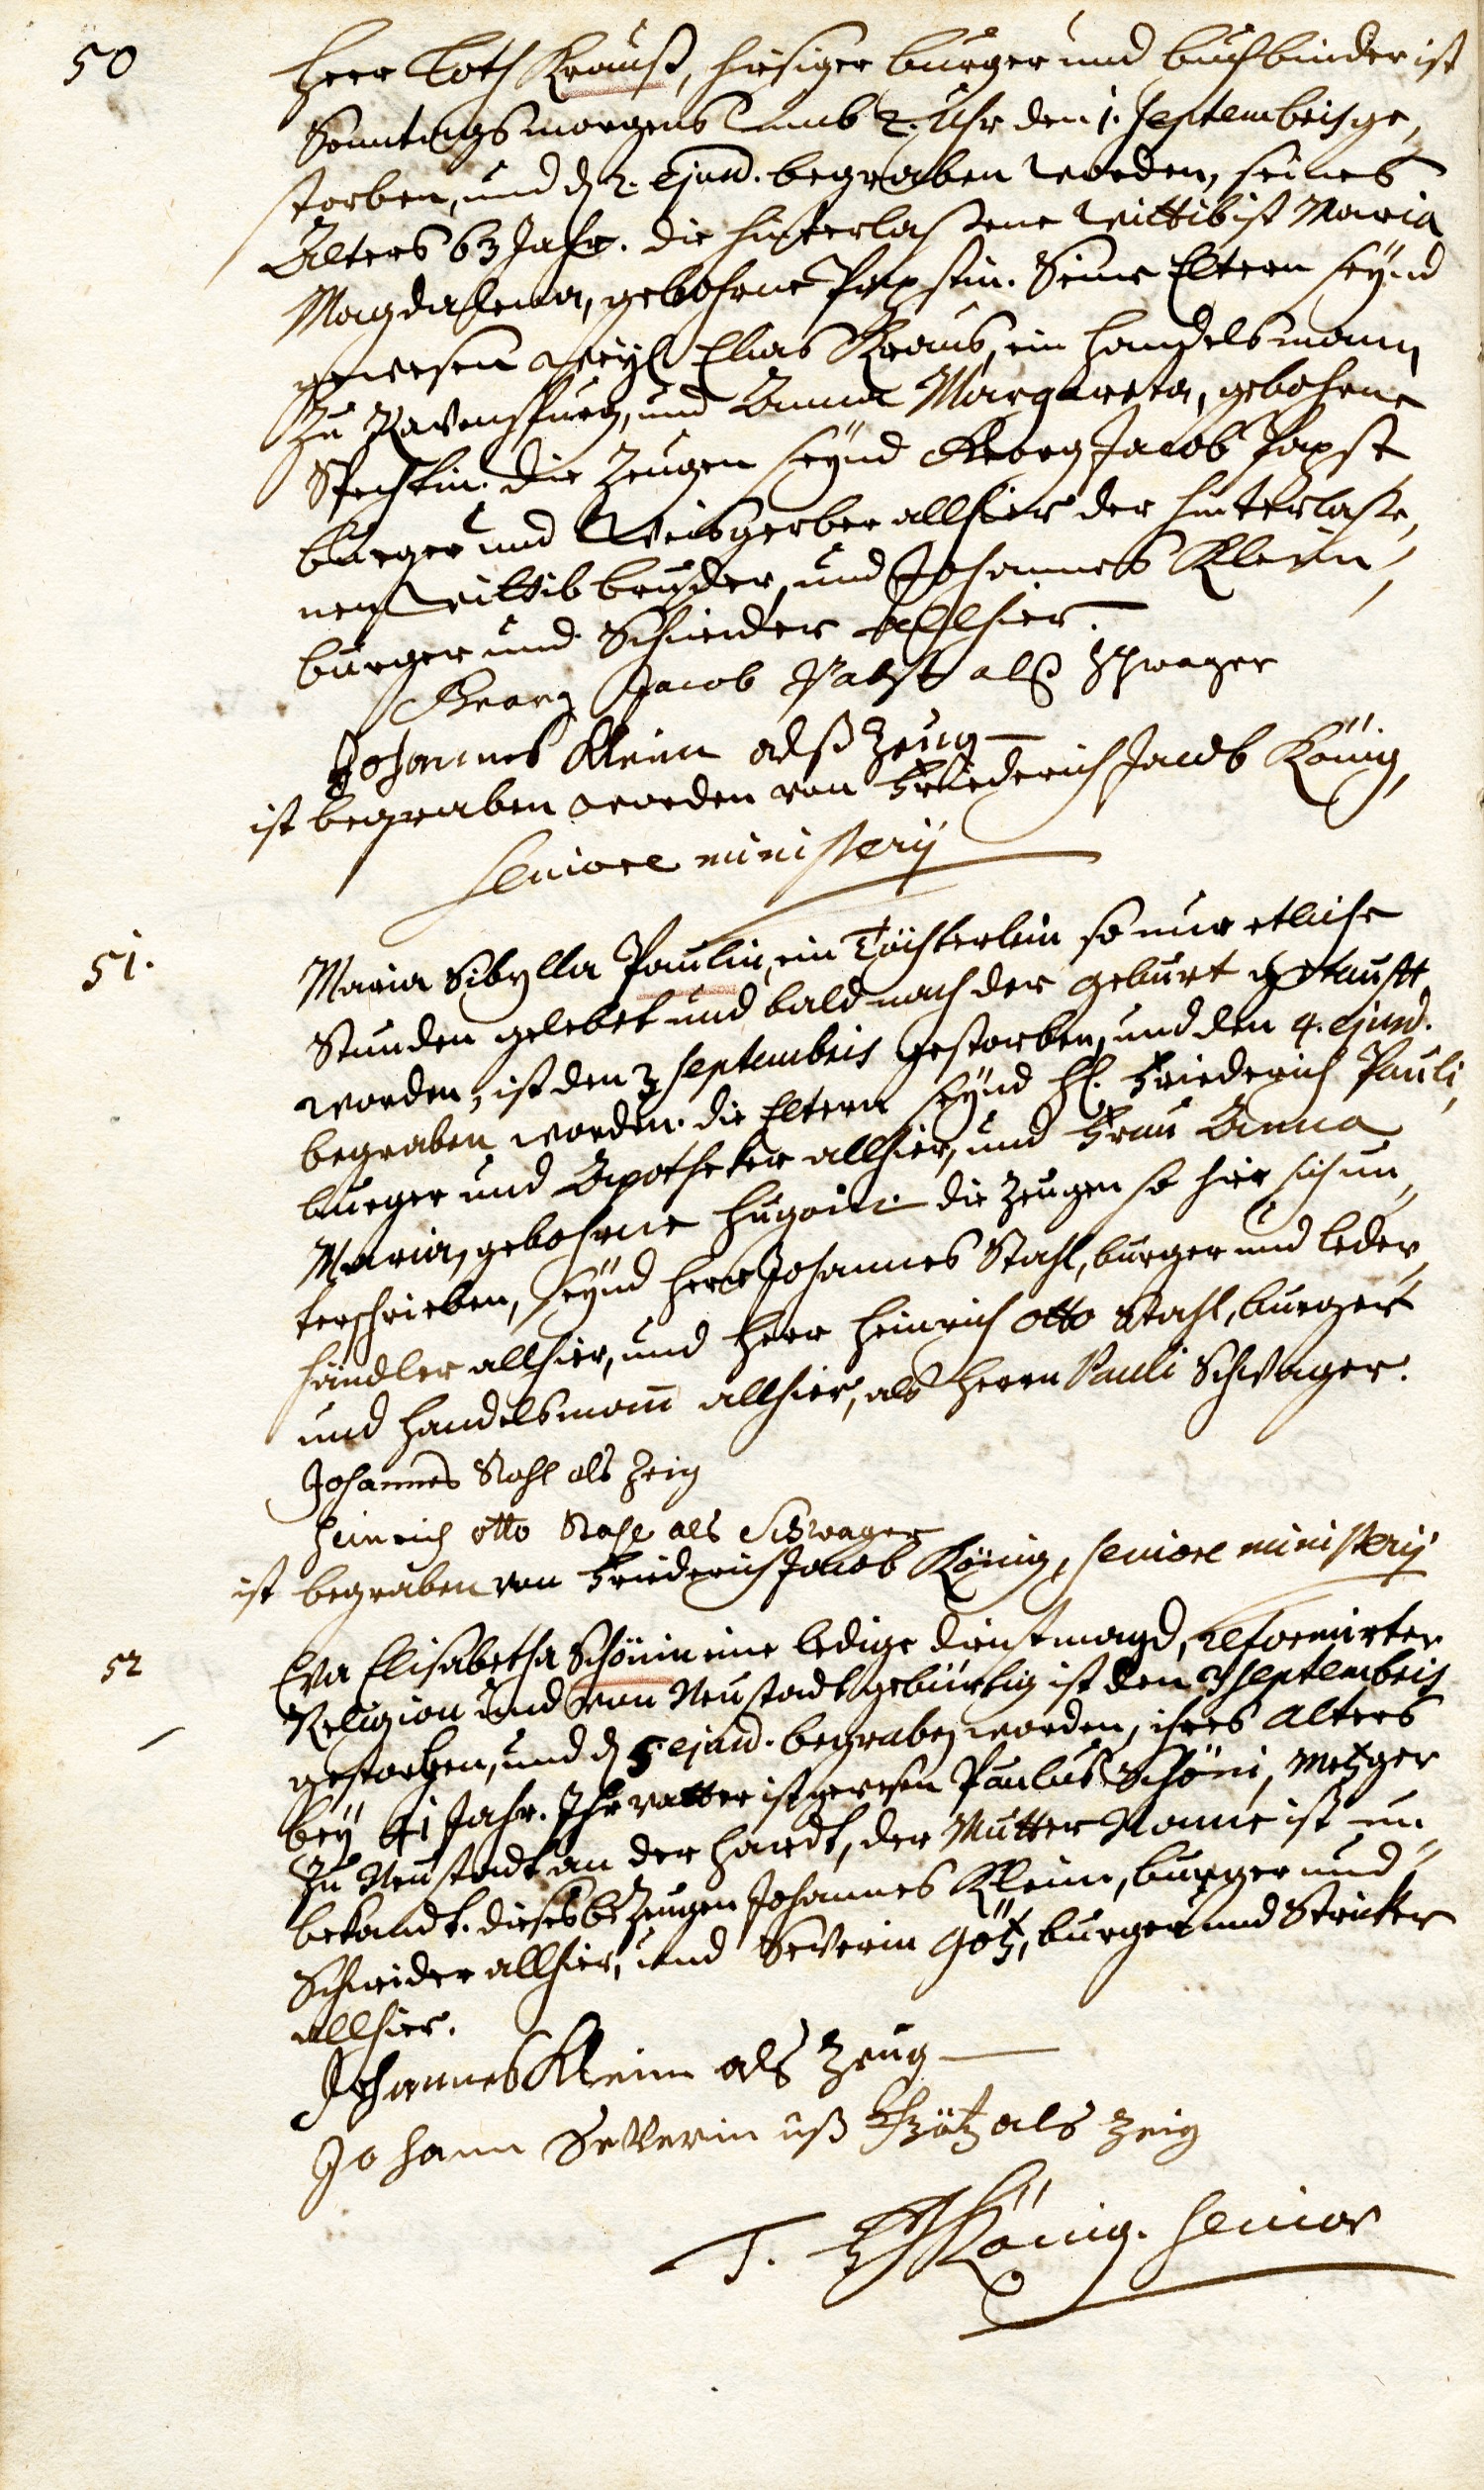 50 Herr Loth Krauß, hiesiger burger und buchbinder ist
Sonntags morgens umb 2. Uhr den 1. Septembris ge,,
storben, und d. 2. Ejusd. begraben worden, seines
Alters 63 Jahr. die hinterlaßene Wittib ist Maria
Magdalena, gebohrne Papstin. Seine Eltern seÿnd
gewesen weÿl. Elias Kraus, ein Handelsmann
Zu Ravenspurg, und Anna Margareta, gebohrne
Spechtin. die Zeugen seÿnd Georg Jacob Papst
burger und Weisgerber allhier der hinterlaße,,
nen Wittib bruder, und Johannes Klein,
burger und Schneider allhier.
Georg Jacob Pabst alß Schwager
Johannes Klein alß Zeug
ist begraben worden von Friederich Jacob König,
Seniore ministerij
51. Maria Sibylla Paulin, ein Töchterlein so nur etliche
Stunden gelebet und bald nach der geburt getaufft
worden, ist den 3 Septembris gestorben, und den 4. ejusd.
begraben worden. die Eltern seÿnd H. Friederich Pauli,
burger und Apotheker allhier, und Frau Anna
Maria, gebohrne Hugoin. die Zeugen so hier sich un,,
terschrieben, seÿnd Herr Johannes Stahl, burger und leder,,
händler allhier, und Herr Heinrich Otto Stahl, burger
und Handelsmañ allhier, als Herrn Pauli Schwager.
Johannes Stahl als Zeig
Heinrich Otto Stahl als Schwager
ist begraben von Friederich Jacob König, Seniore ministerij
52 Eva Elisabetha Schönin eine ledige dienstmagd, reformirter
Religion und von Neustadt gebürtig ist den 3 Septembris
gestorben, und d. 5 ejusd. begraben worden, ihres Alters
beÿ 41 Jahr. Ihr vatter ist gewesen Paulus Schöni, Metzger
Zu Neustadt an der Hardt, der Mutter Name ist un,,
bekandt. dieses bezeugen Johannes Klein, burger und
Schneider allhier, und Severin Götz, burger und Stricker
allhier.
Johannes Klein als Zeug
Johann Severin Götz als Zeig
König. Senior